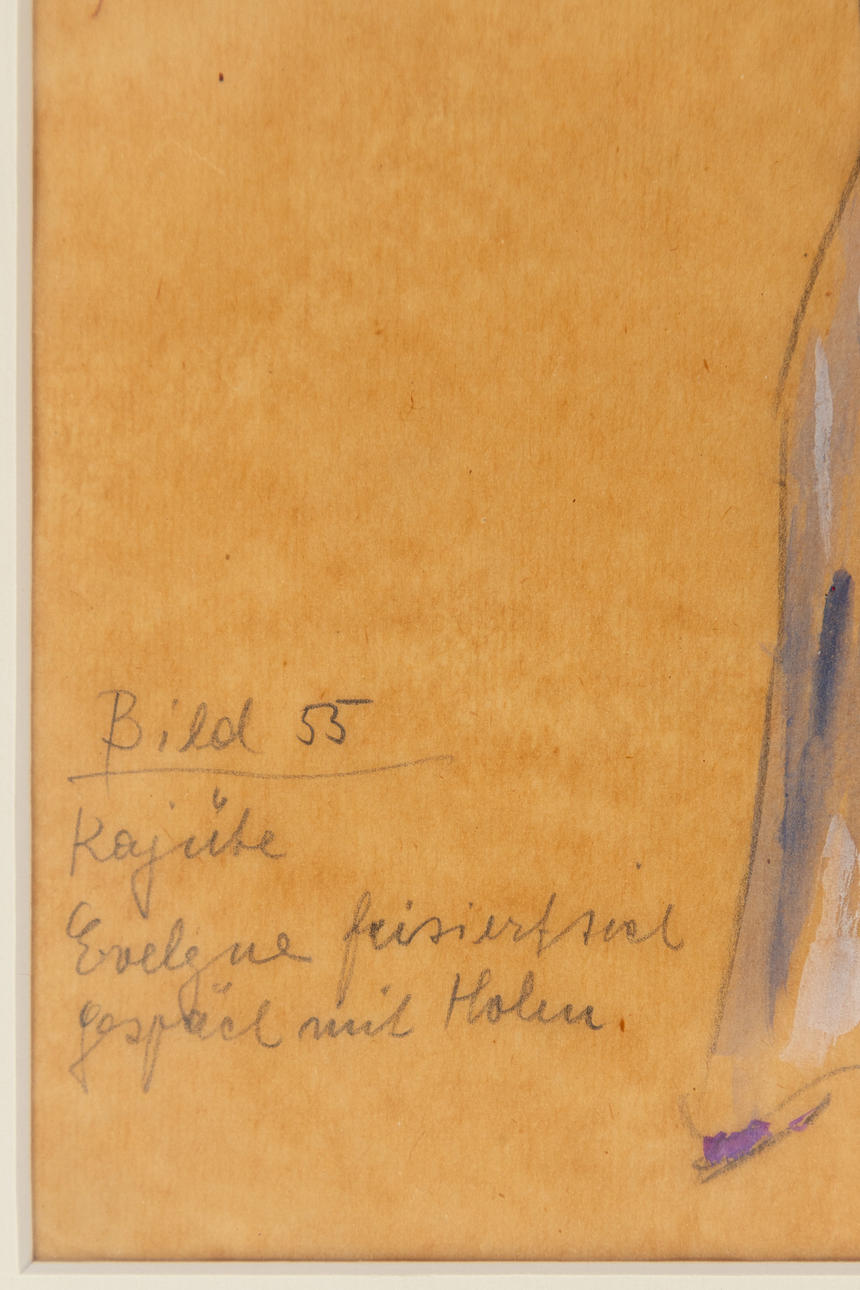 Bild 55
Kajüte
Evelyne frisiert sich
gespäch mit Holm